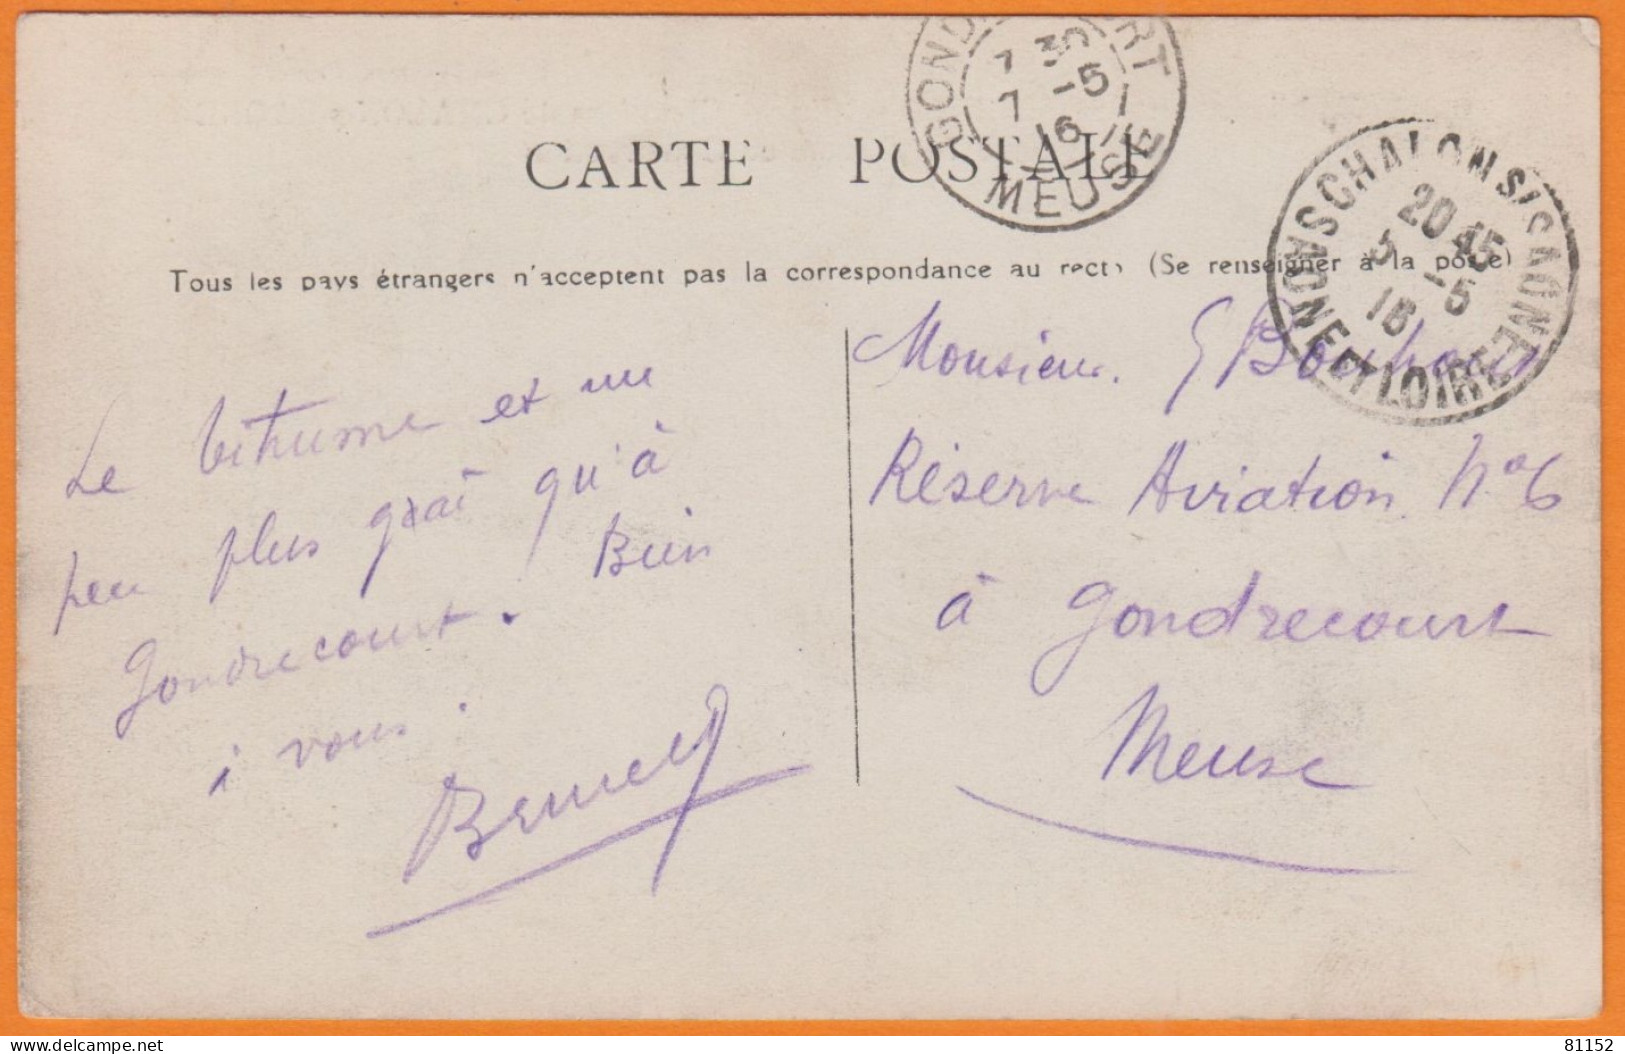 GOND RT
7 30
7 -5
16
MEUSE
CARTE POSTALE
CHALON S/SAONE
20 45
3 -5
16
SAONE ET LOIRE
Tous les pays étrangers n'acceptent pas la correspondance au recto (Se renseigner à la poste)
Monsieur G
Réserve Aviation N° 6
à Gondrecourt
Meuse
Le bitume et un
peu plus gai qu'à
Gondrecourt. Bien
à vous.
delcampe.net
81152